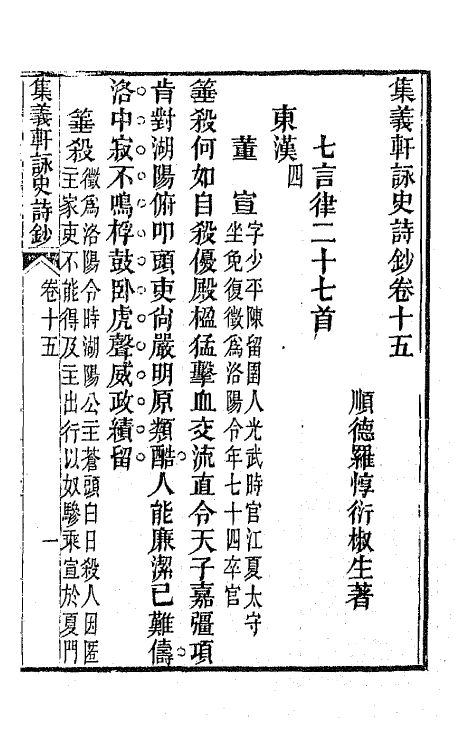 集義軒詠史詩鈔卷十五
順德羅惇衍椒生著
七言律二十七首
東漢四
董宣字少平陳留圉人光武時官江夏太守
坐免復徵爲洛陽令年七十四卒官
箠殺何如自殺優殿楹猛擊血交流直令天子嘉彊項
肯對湖陽俯叩頭吏尙嚴明原類酷人能廉潔已難儔
洛中寂不鳴桴鼓臥虎聲威政績留
箠殺徵爲洛陽令時湖陽公主蒼頭白日殺人因匿
主家吏不能得及主出行以奴驂乘宣於夏門
集義軒詠史詩鈔
卷十五
一